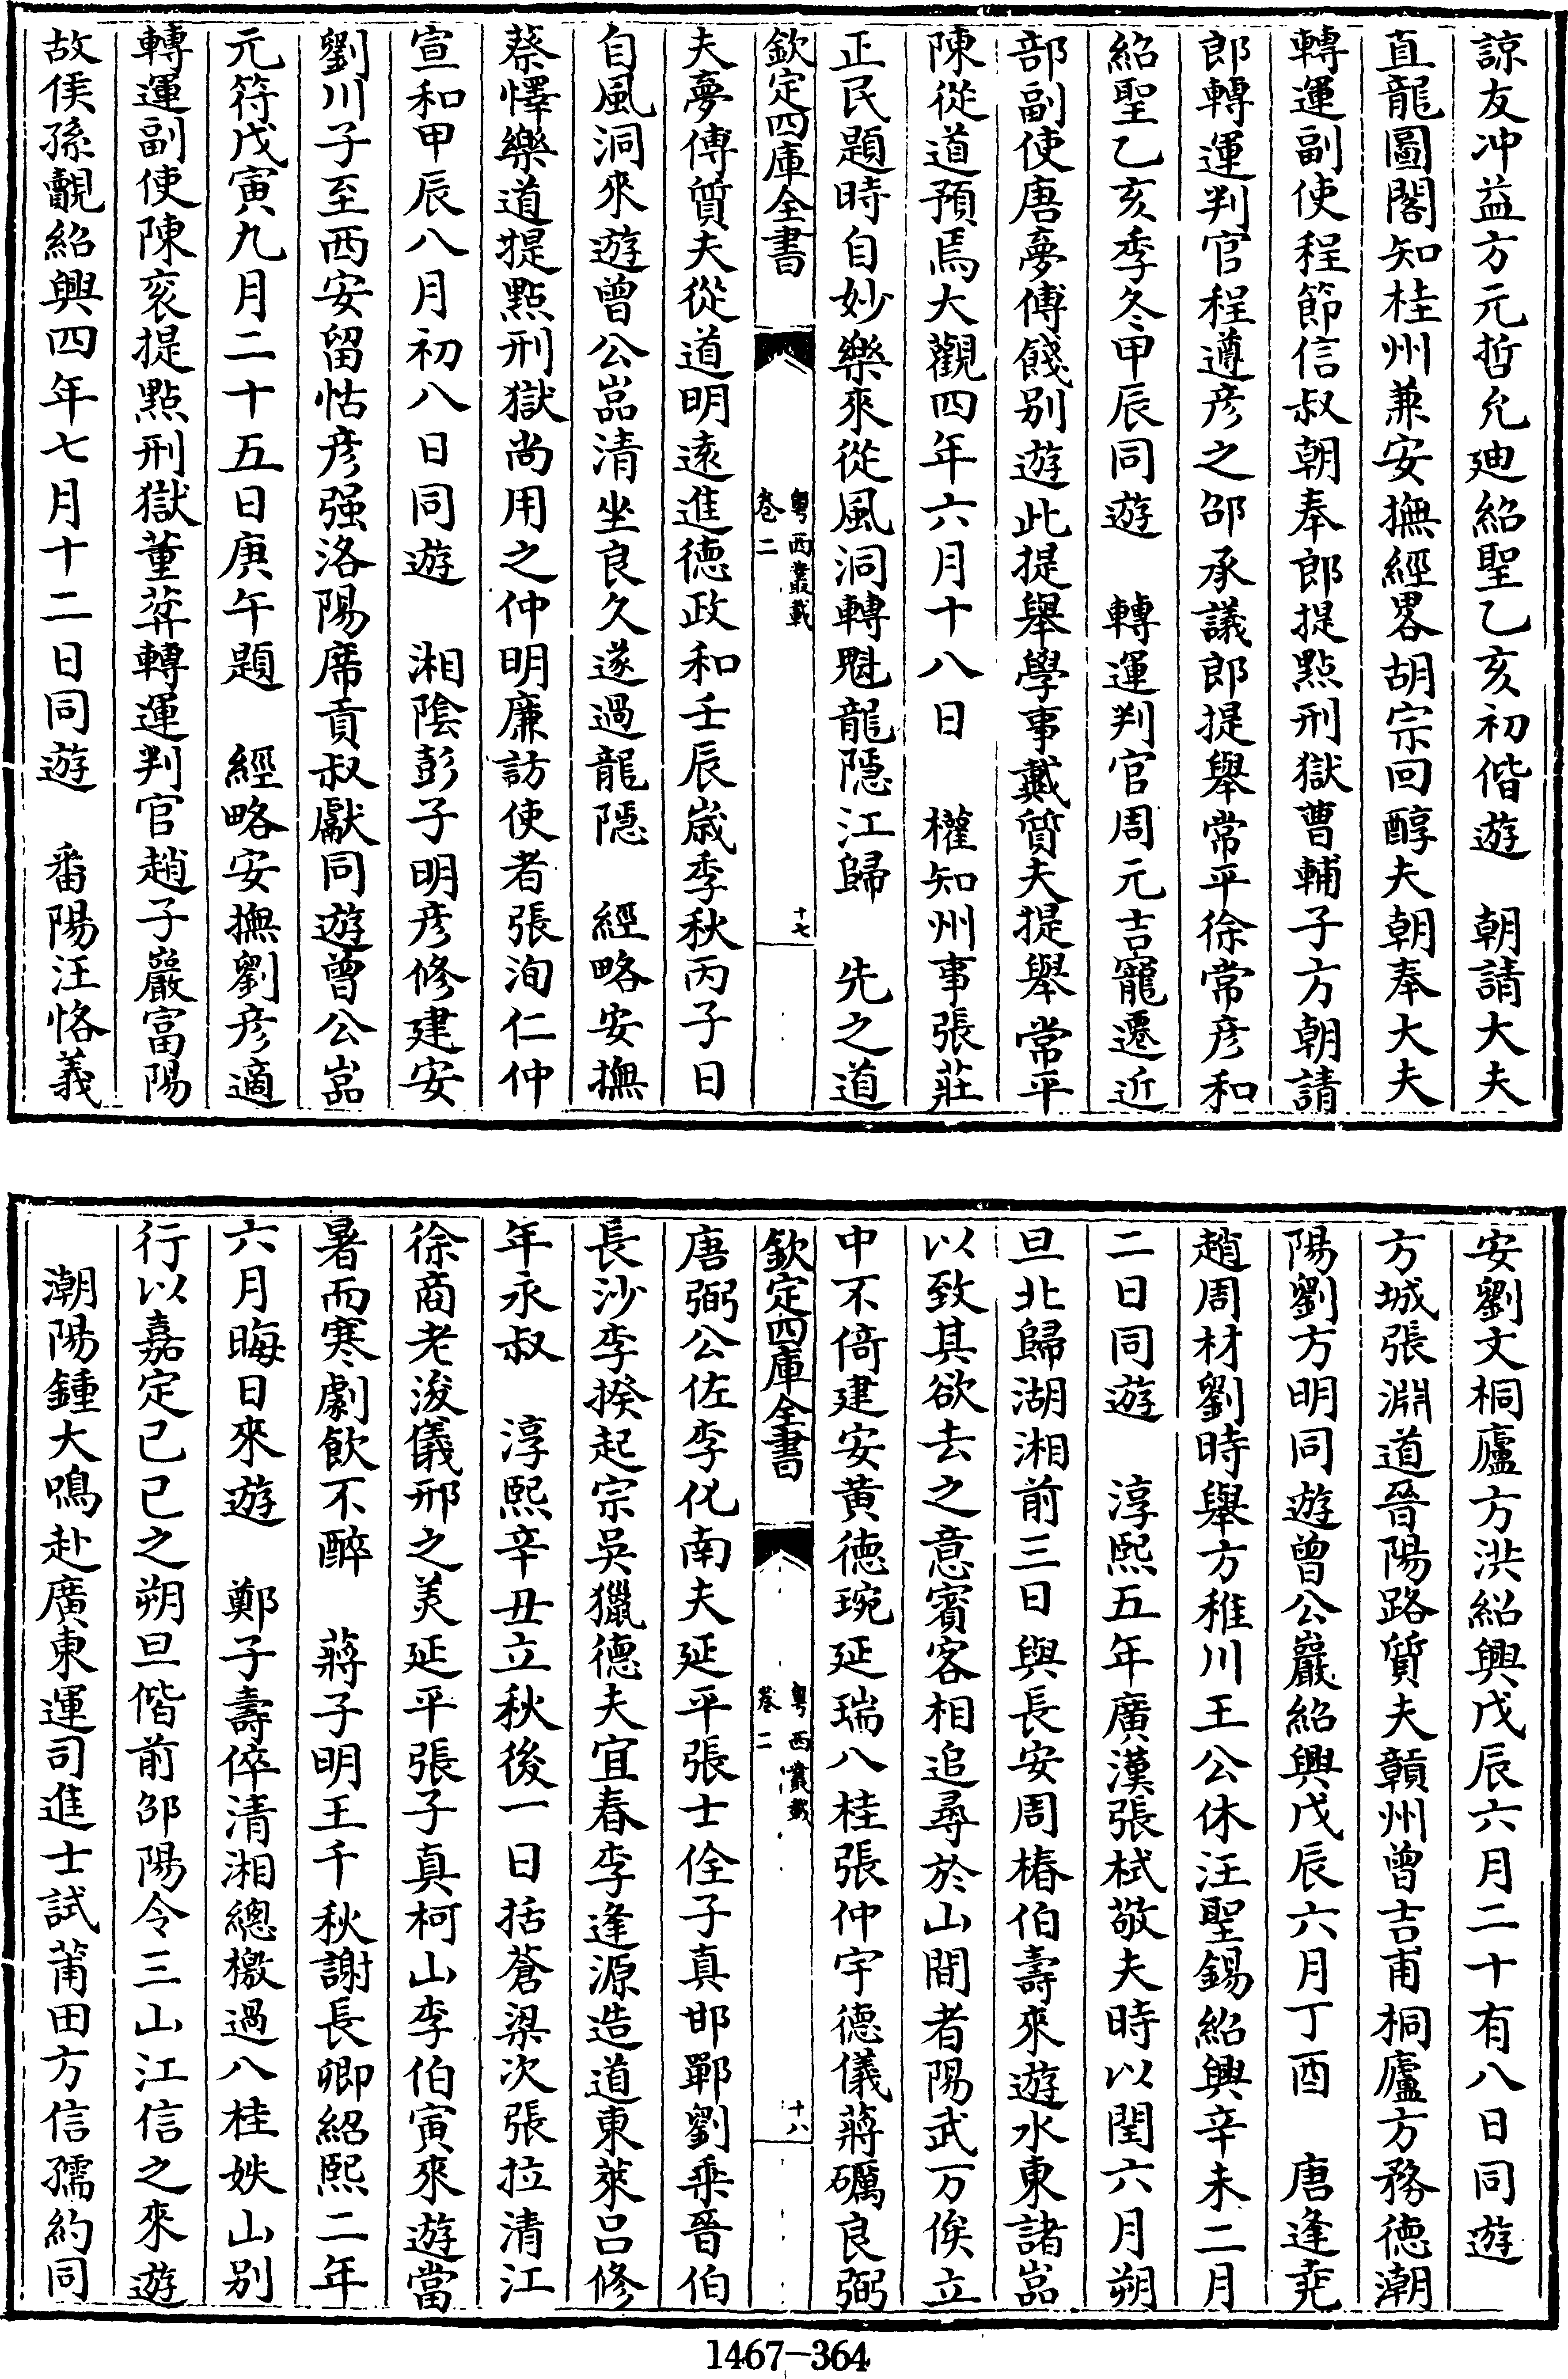 諒友冲益方元哲允迪紹聖乙亥初偕遊　朝請大夫
直龍圖閣知桂州兼安撫經畧胡宗回醇夫朝奉大夫
轉運副使程節信叔朝奉郎提點刑獄曹輔子方朝請
郎轉運判官程遵彥之邵承議郎提舉常平徐常彥和
紹聖乙亥季冬甲辰同遊　轉運判官周元吉寵遷近
部副使唐夢傅餞别遊此提舉學事戴質夫提舉常平
陳從道預焉大觀四年六月十八日　權知州事張莊
正民題時自妙樂來從風洞轉魁龍隱江歸　先之道
欽定四庫全書
粤西叢載
卷二
十七
夫夢傅質夫從道明遠進德政和壬辰歲季秋丙子日
自風洞來遊曾公嵒清坐良久遂過龍隱　經略安撫
蔡懌樂道提點刑獄尚用之仲明廉訪使者張洵仁仲
宣和甲辰八月初八日同遊　湘陰彭子明彥修建安
劉川子至西安留怙彥强洛陽席貢叔獻同遊曾公嵒
元符戊寅九月二十五日庚午題　經略安撫劉彥適
轉運副使陳衮提點刑獄董棻轉運判官趙子巖富陽
故侯孫覿紹興四年七月十二日同遊　番陽汪恪義
安劉文桐廬方洪紹興戊辰六月二十有八日同遊
方城張淵道晉陽路質夫贑州曾吉甫桐廬方務德潮
陽劉方明同遊曾公巖紹興戊辰六月丁酉　唐逢堯
趙周材劉時舉方稚川王公休汪聖錫紹興辛未二月
二日同遊　淳熙五年廣漢張栻敬夫時以閏六月朔
旦北歸湖湘前三日與長安周椿伯壽來遊水東諸嵒
以致其欲去之意賓客相追尋於山間者陽武万俟立
中不倚建安黄德琬延瑞八桂張仲宇德儀蔣礪良弼
欽定四庫全書
粤西叢載
卷二
十八
唐弼公佐李化南夫延平張士佺子真邯鄲劉乘晉伯
長沙李揆起宗吳獵德夫宜春李逢源造道東萊呂修
年永叔　淳熙辛丑立秋後一日括蒼梁次張拉清江
徐商老浚儀邢之美延平張子真柯山李伯寅來遊當
暑而寒劇飲不醉　蔣子明王千秋謝長卿紹熙二年
六月晦日來遊　鄭子壽倅清湘總檄過八桂妷山别
行以嘉定己巳之朔旦偕前邵陽令三山江信之來遊
潮陽鍾大鳴赴廣東運司進士試莆田方信孺約同
1467-364